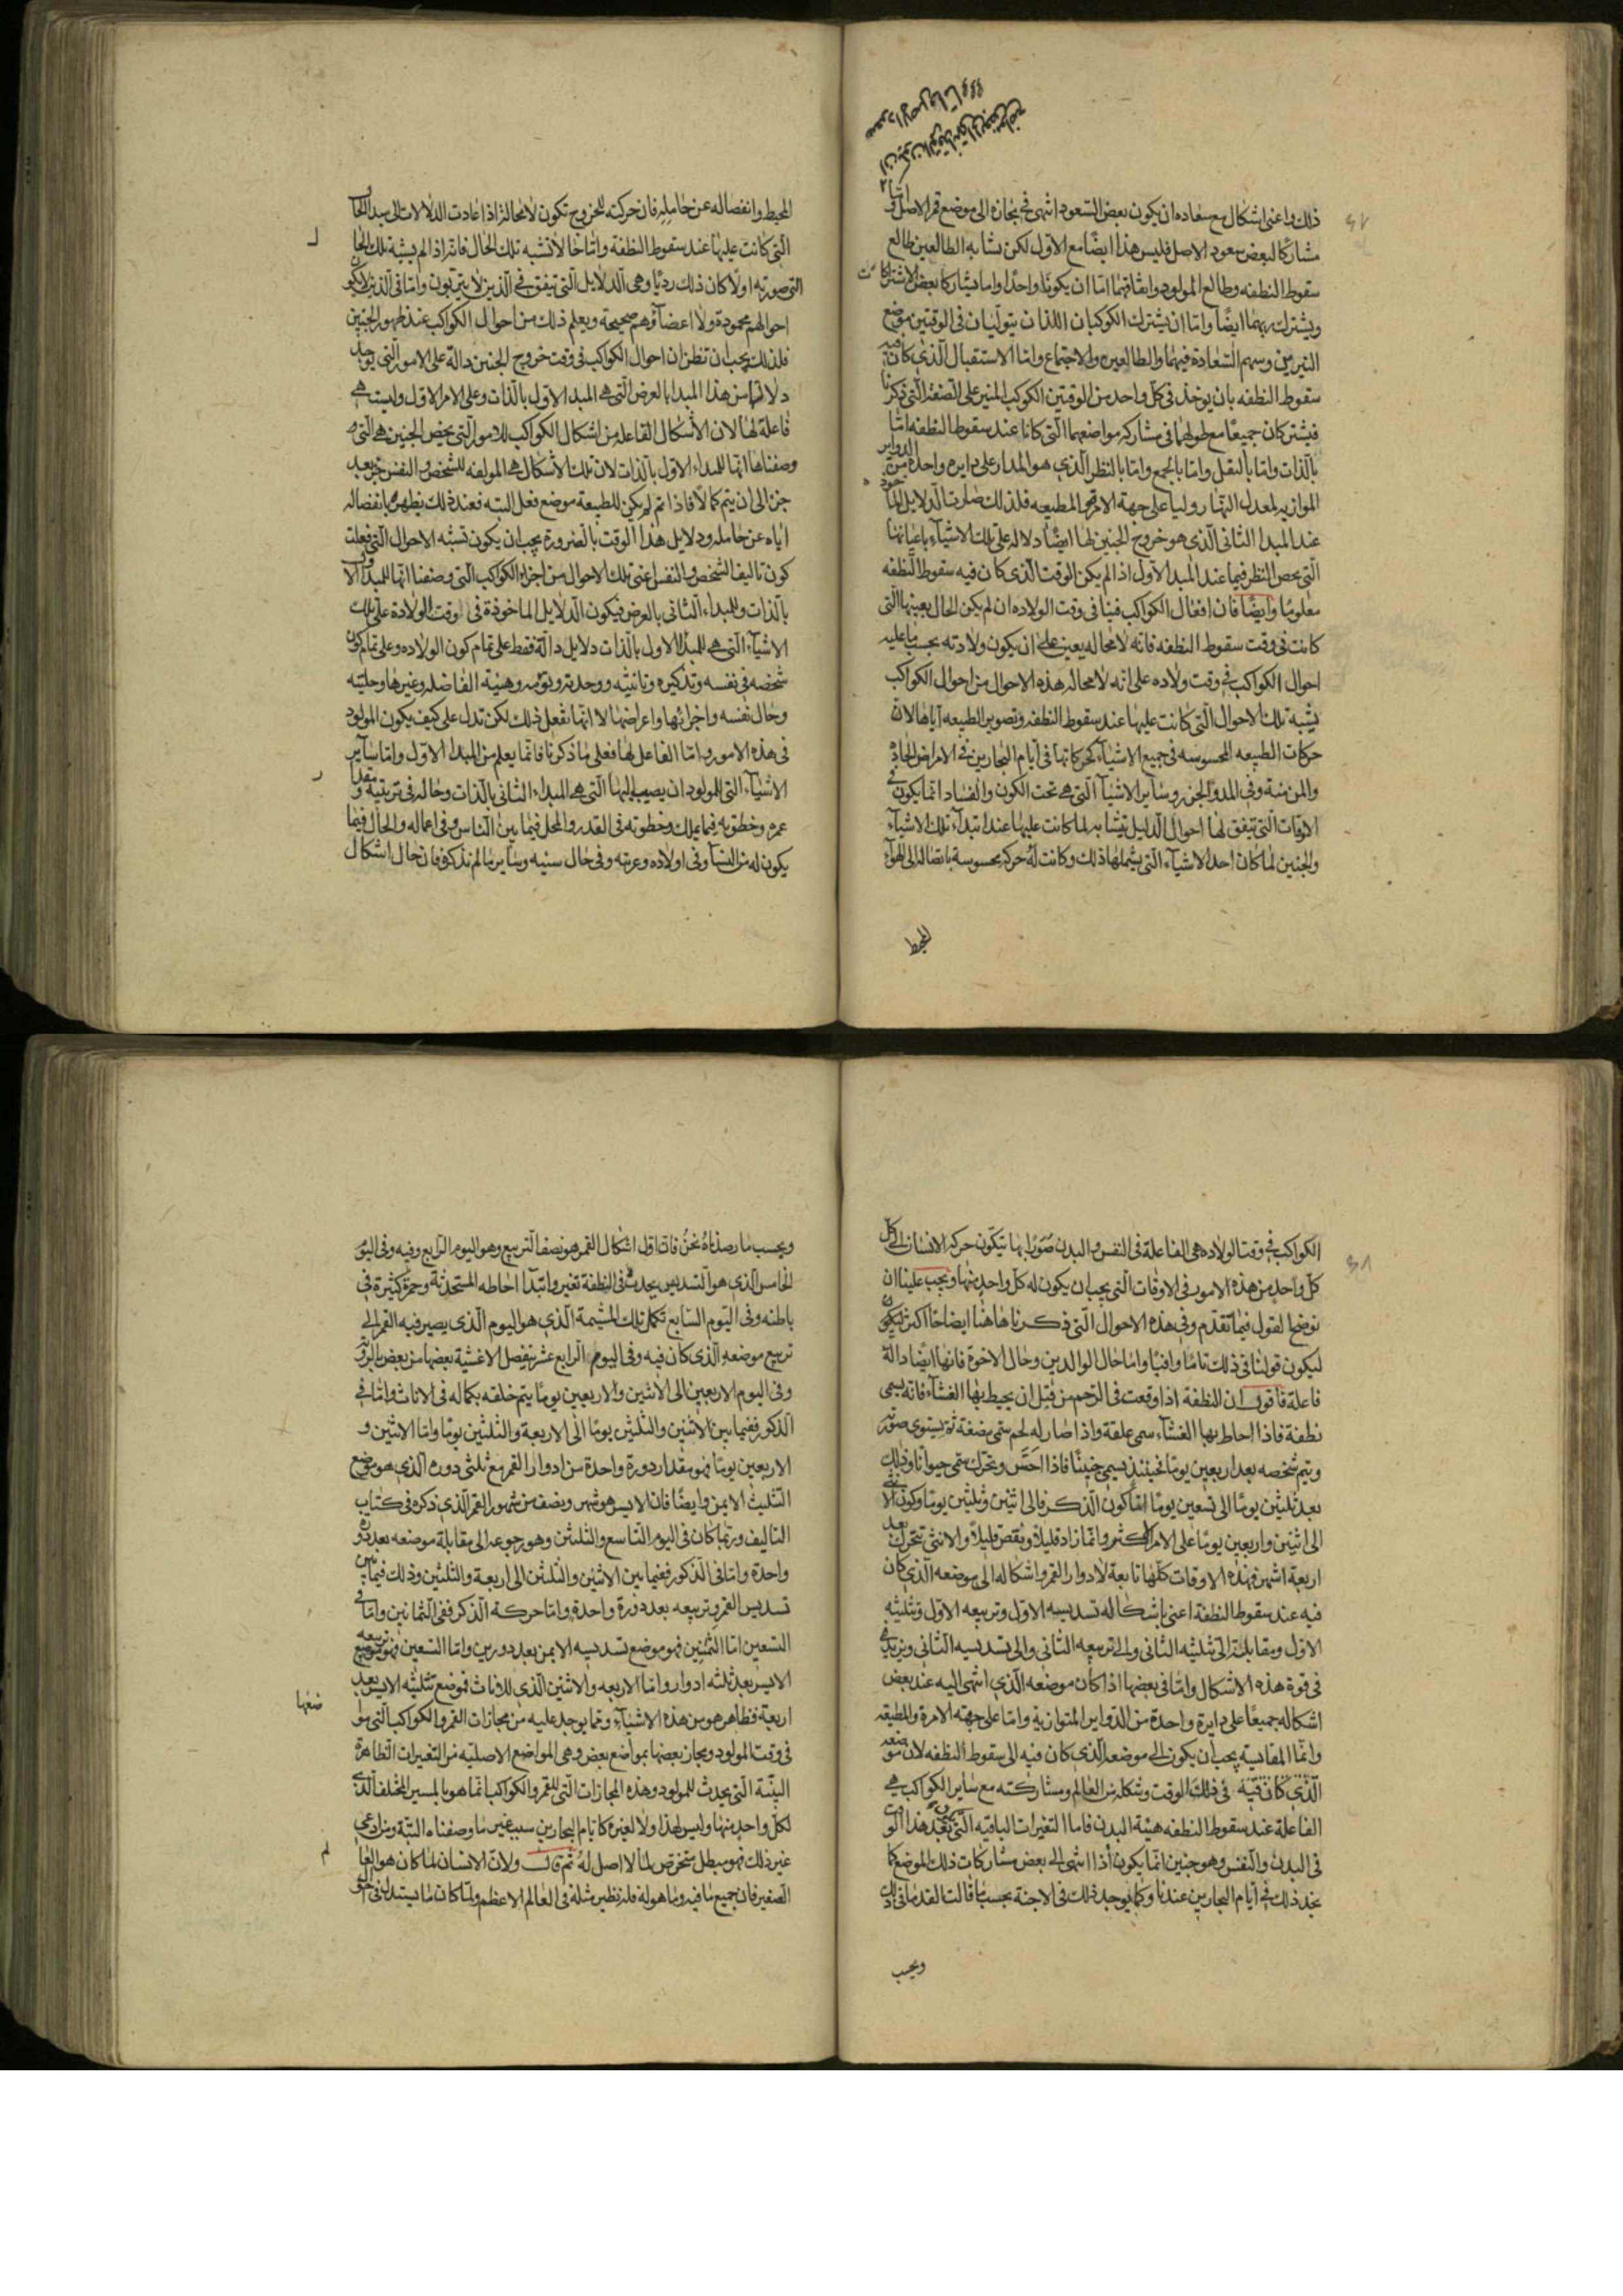 ذلك واعنى اشكال مع سعاده ان يكون بعض السعود انتهى فى مجازه الى موضع قمر الاصل او
مشاركا لبعض سعود الاصل فليس هذا ايضًا مع الاول لكن تشابه الطالعين طالع
سقوط النطفه وطالع المولود واتفاقهما امّا ان يكونا واحدًا واما يتشاركا بعض الاشتراكات
ويشترك ربهما ايضًا وامّا ان يشترك الكوكبان اللذان يتوليان فى الوقتين موضع
النيرين وسهم السّعادة فيهما والطالعين والاجتماع وامّا الاستقبال الّذى كان فيه
سقوط النطفه بان يوخذ فى كلّ واحد من الوقتين الكوكب المنير على الصّفة الّتى ذكرنا
فيشتركان جميعًا مع حلولهما فى مشاركه مواضعهما الّتى كانا عند سقوط النطفه امّا
بالذات وامّا بالنقل وامّا بالجمع وامّا بالنظر الّذى هو المدار على دايره واحدة من الدواير
الموازيه لمعدل النّهار وليا على جهة الامره والمطيعه فلذلك صارت الدّلايل
عند المبدا الثانى الّذى هو خروج الجنين لها ايضًا دلاله على تلك الاشيآء باعيانها
الّتى يخص النظر فيها عند المبدا الاول اذا لم يكن الوقت الّذى كان فيه سقوط النّطفه
معلومًا وايضًا فان افعال الكواكب فينا فى وقت الولاده ان لم يكن الحال بعينها الّتى
كانت فى وقت سقوط النطفه فانّه لا محاله يعين على ان يكون ولادته بحسب ما عليه
احوال الكواكب فى وقت ولاده على انّه لا محاله هذه الاحوال من احوال الكواكب
يشبه تلك الاحوال الّتى كانت عليها عند سقوط النطفه وتصوير الطبيعه اياها لان
حركات الطبيعه المحسوسه فى جميع الاشيآء كحركاتها فى ايام البحارين فى الامراض الحادّة
والمزمنة وفى المد والجزر وساير الاشيآ الّتى هى تحت الكون والفساد انّما يكون فى
الاوقات الّتى تتفق لها احوال الدّلايل تتشابه لما كانت عليها عند ابتدآء تلك الاشيآء
والجنين لما كان احد الاشيآء الّتى يشملها ذلك وكانت له حركه محسوسة باتصاله الى الهوآء
المحيط
المحيط وانفصاله عن حامله فان حركته للخروج تكون لا محالة اذا عادت الدلالات الى مبدا الحال
الّتى كانت عليها عند سقوط النطفة وامّا حالا تشبه تلك الحال فانّه اذا لم يشبه تلك الحال
التى صورته اولًا كان ذلك رديًا وهى الدّلايل الّتى تتفق فى الّذين لا يتربون وامّا فى الّذين لا يكون
احوالهم محمودة ولا اعضآؤهم صحيحة ويعلم ذلك من احوال الكواكب عند ظهور الجنين
فلذلك يجب ان تظن ان احوال الكواكب فى وقت خروج الجنين دالّة على الامور الّتى يوجد
دلالاتها من هذا المبدا بالعرض الّتى هى المبدا الاول بالذات وعلى الامر الاول وليست هى
فاعلة لها لان الاشكال الفاعله من اشكال الكواكب للامور الّتى يخص الجنين هى الّتى
وصفناها انّها للمبداء الاول بالذات لان تلك الاشكال هى المولفه للشخص والنفس جزء بعد
جزء الى ان يتم كمالا فاذا تم لم يكن للطبيعة موضع فعل البته فعند ذلك يظهر بانفصاله
اياه عن حامله ودلايل هذا الوقت بالضرورة يجب ان يكون تشبه الاحوال الّتى فعلت
كون تاليف الشخص والنفس اعنى تلك الاحوال من اجزاء الكواكب الّتى وصفنا انّها للمبدا الاول
بالذات وللمبداء الثانى بالعرض فيكون الدّلايل الماخوذة فى وقت الولادة على تلك
الاشيآء الّتى هى للمبدا الاول بالذات دلايل دالّة فقط على تمام كون الولاده وعلى تمام كون
شخصه فى نفسه وتذكيره وتانثيه ووحدته وتؤمه وهيئة الفاضله وغيرها وحليته
وحال نفسه واجزائها واعراضها لا انّها تفعل ذلك لكن تدل على كيف يكون المولود
فى هذه الامور وامّا الفاعل لها فعلى ما ذكرنا فانّما يعلم من المبداء الاول وامّا ساير
الاشيآء الّتى للمولود ان يصيب اليها الّتى هى المبداء الثانى بالذات وحاله فى تربيته ومقدار
عمره وحظوته فيما يملك وحظوته فى القدر والمحل فيما بين النّاس وفى اعماله والحال فيما
يكون له من النسآء وفى اولاده وغربته وفى حال سنيه وساير ما لم نذكر فان حال اشكال
الكواكب فى وقت الولاده هى الفاعلة فى النفس والبدن صورًا بها تتكون حركه الانسان الى كل
كلّ واحد من هذه الامور فى الاوقات الّتى يجب ان يكون له كلّ واحد منها ويجب علينا ان
نوضح القول فيما تقدم وفى هذه الاحوال الّتى ذكرناها هاهنا ايضاحًا اكثر
ليكون قولنا فى ذلك تامًا وافيًا وامّا حال الوالدين وحال الاخوة فانها ايضًا دالة
فاعلة فاقول ان النطفة اذا وقعت فى الرّحم من قبل ان يحيط بها الغشآء فانه يسمى
نطفة فاذا احاط بها الغشآء سمى علقة واذا صار له لحم سمّى مضغة ثم يستوى صورته
ويتم شخصه بعد اربعين يومًا فحينئذ يسمى جنينًا فاذا احسّ وتحرّك سمّى حيوانًا وذلك
بعد ثلثين يومًا الى تسعين يومًا امّا كون الذّكر فالى اثنين وثلثين يومًا وكون الانثى
الى اثنين واربعين يومًا على الامر الاكثر وانّما زاد قليلًا ونقص قليلًا والانثى تتحرك بعد
اربعة اشهر فهذه الاوقات كلّها تابعة لادوار القمر واشكاله الى موضعه الّذى كان
فيه عند سقوط النطفة اعنى باشكاله تسديسه الاول وتربيعه الاول وتثليثه
الاول ومقابلته الى تثليثه الثانى والى تربيعه الثانى والى تسديسه الثانى ويزيد
فى قوة هذه الاشكال وامّا فى بعضها اذا كان موضعه الّذى انتهى اليه عند بعض
اشكاله جميعًا على دايرة واحدة من الدّواير المتوازية وامّا على جهته الامرة والمطيعه
وانّما المقايسة يجب ان يكون الى موضعه الّذى كان فيه الى سقوط النطفه لان موضعه
الّذى كان فيه فى ذلك الوقت وشكله من العالم ومشاركته مع ساير الكواكب هى
الفاعلة عند سقوط النطفه هيئة البدن فاما التغيرات الباقيه الّتى بعد هذا الوقت
فى البدن والنّفس وهو جنين انّما يكون اذا انتهى الى بعض مشاركات ذلك الموضع كما
نجد ذلك فى ايام البحارين عندنا وكما يوجد ذلك فى الاجنة بحسب ما قالت القدما فى ذلك
وبحسب
وبحسب ما رصدناه نحن فان اول اشكال القمر هو نصف التّربيع وهو اليوم الرّابع وفيه وفى اليوم
الخامس الّذى هو التّسديس يحدث فى النطفة تغير وابتدآ احاطه المستحدثة وحمرة كثيرة فى
باطنه وفى اليوم السّابع تكمل تلك المشيمة الّذى هو اليوم الّذى يصير فيه القمر الى
تربيع موضعه الّذى كان فيه وفى اليوم الرّابع عشر ينفصل الاغشية بعضها من بعض
وفى اليوم الاربعين الى الاثنين والاربعين يومًا يتم خلقه بكماله فى الاناث وامّا فى
الّذكور ففيما بين الاثنين والثّلثين يومًا الى الاربعة والثّلثين يومًا وامّا الاثنين و
الاربعين يومًا فهو مقدار دورة واحدة من ادوار القمر مع ثلثى دوره الّذى هو موضع
التّثليث الايمن وايضًا فان الايسر هو شهر ونصف من شهور القمر الّذى ذكره فى كتاب
التاليف وربما كان فى اليوم التّاسع والثّلثين وهو رجوعه الى مقابلة موضعه بعد دورة
واحدة وامّا فى الّذكور ففيما بين الاثنين والثّلثين الى اربعة والثّلثين وذلك فيما بين
تسديس القمر وتربيعه بعد دورة واحدة وامّا حركة الّذكر ففى الثّمانين وامّا فى
التسعين امّا الثّمنين فهو موضع تسديسه الايمن بعد دورين وامّا التّسعين فهو موضع تربيعه
الايسر بعد ثلثه ادوار وامّا الاربعه والاثنين الّذى للاناث فموضع تثليثه الايسر بعد
اربعة فظاهر هو من هذه الاشيآء وممّا يوجد عليه من مجازات القمر والكواكب الّتى
فى وقت المولود ويجاز بعضها بمواضع بعض وهى المواضع الاصليّه من التغيرات الظاهرة
البيّنة الّتى يحدث للمولود وهذه المجازات الّتى للقمر والكواكب انّما هو بالمسير المختلف الّذى
لكلّ واحد منها وليس لهذا ولا لغيره كايام البحارين سبب غير ما وصفناه البتّة ومن ادعى
غير ذلك فهو مبطل متخرّص لما لا اصل له ثم قال ولان الانسان لما كان هو العالم
الصغير فان جميع ما فيه وما هو له فله نظير مثله فى العالم الاعظم ولما كان ما يستدل فى